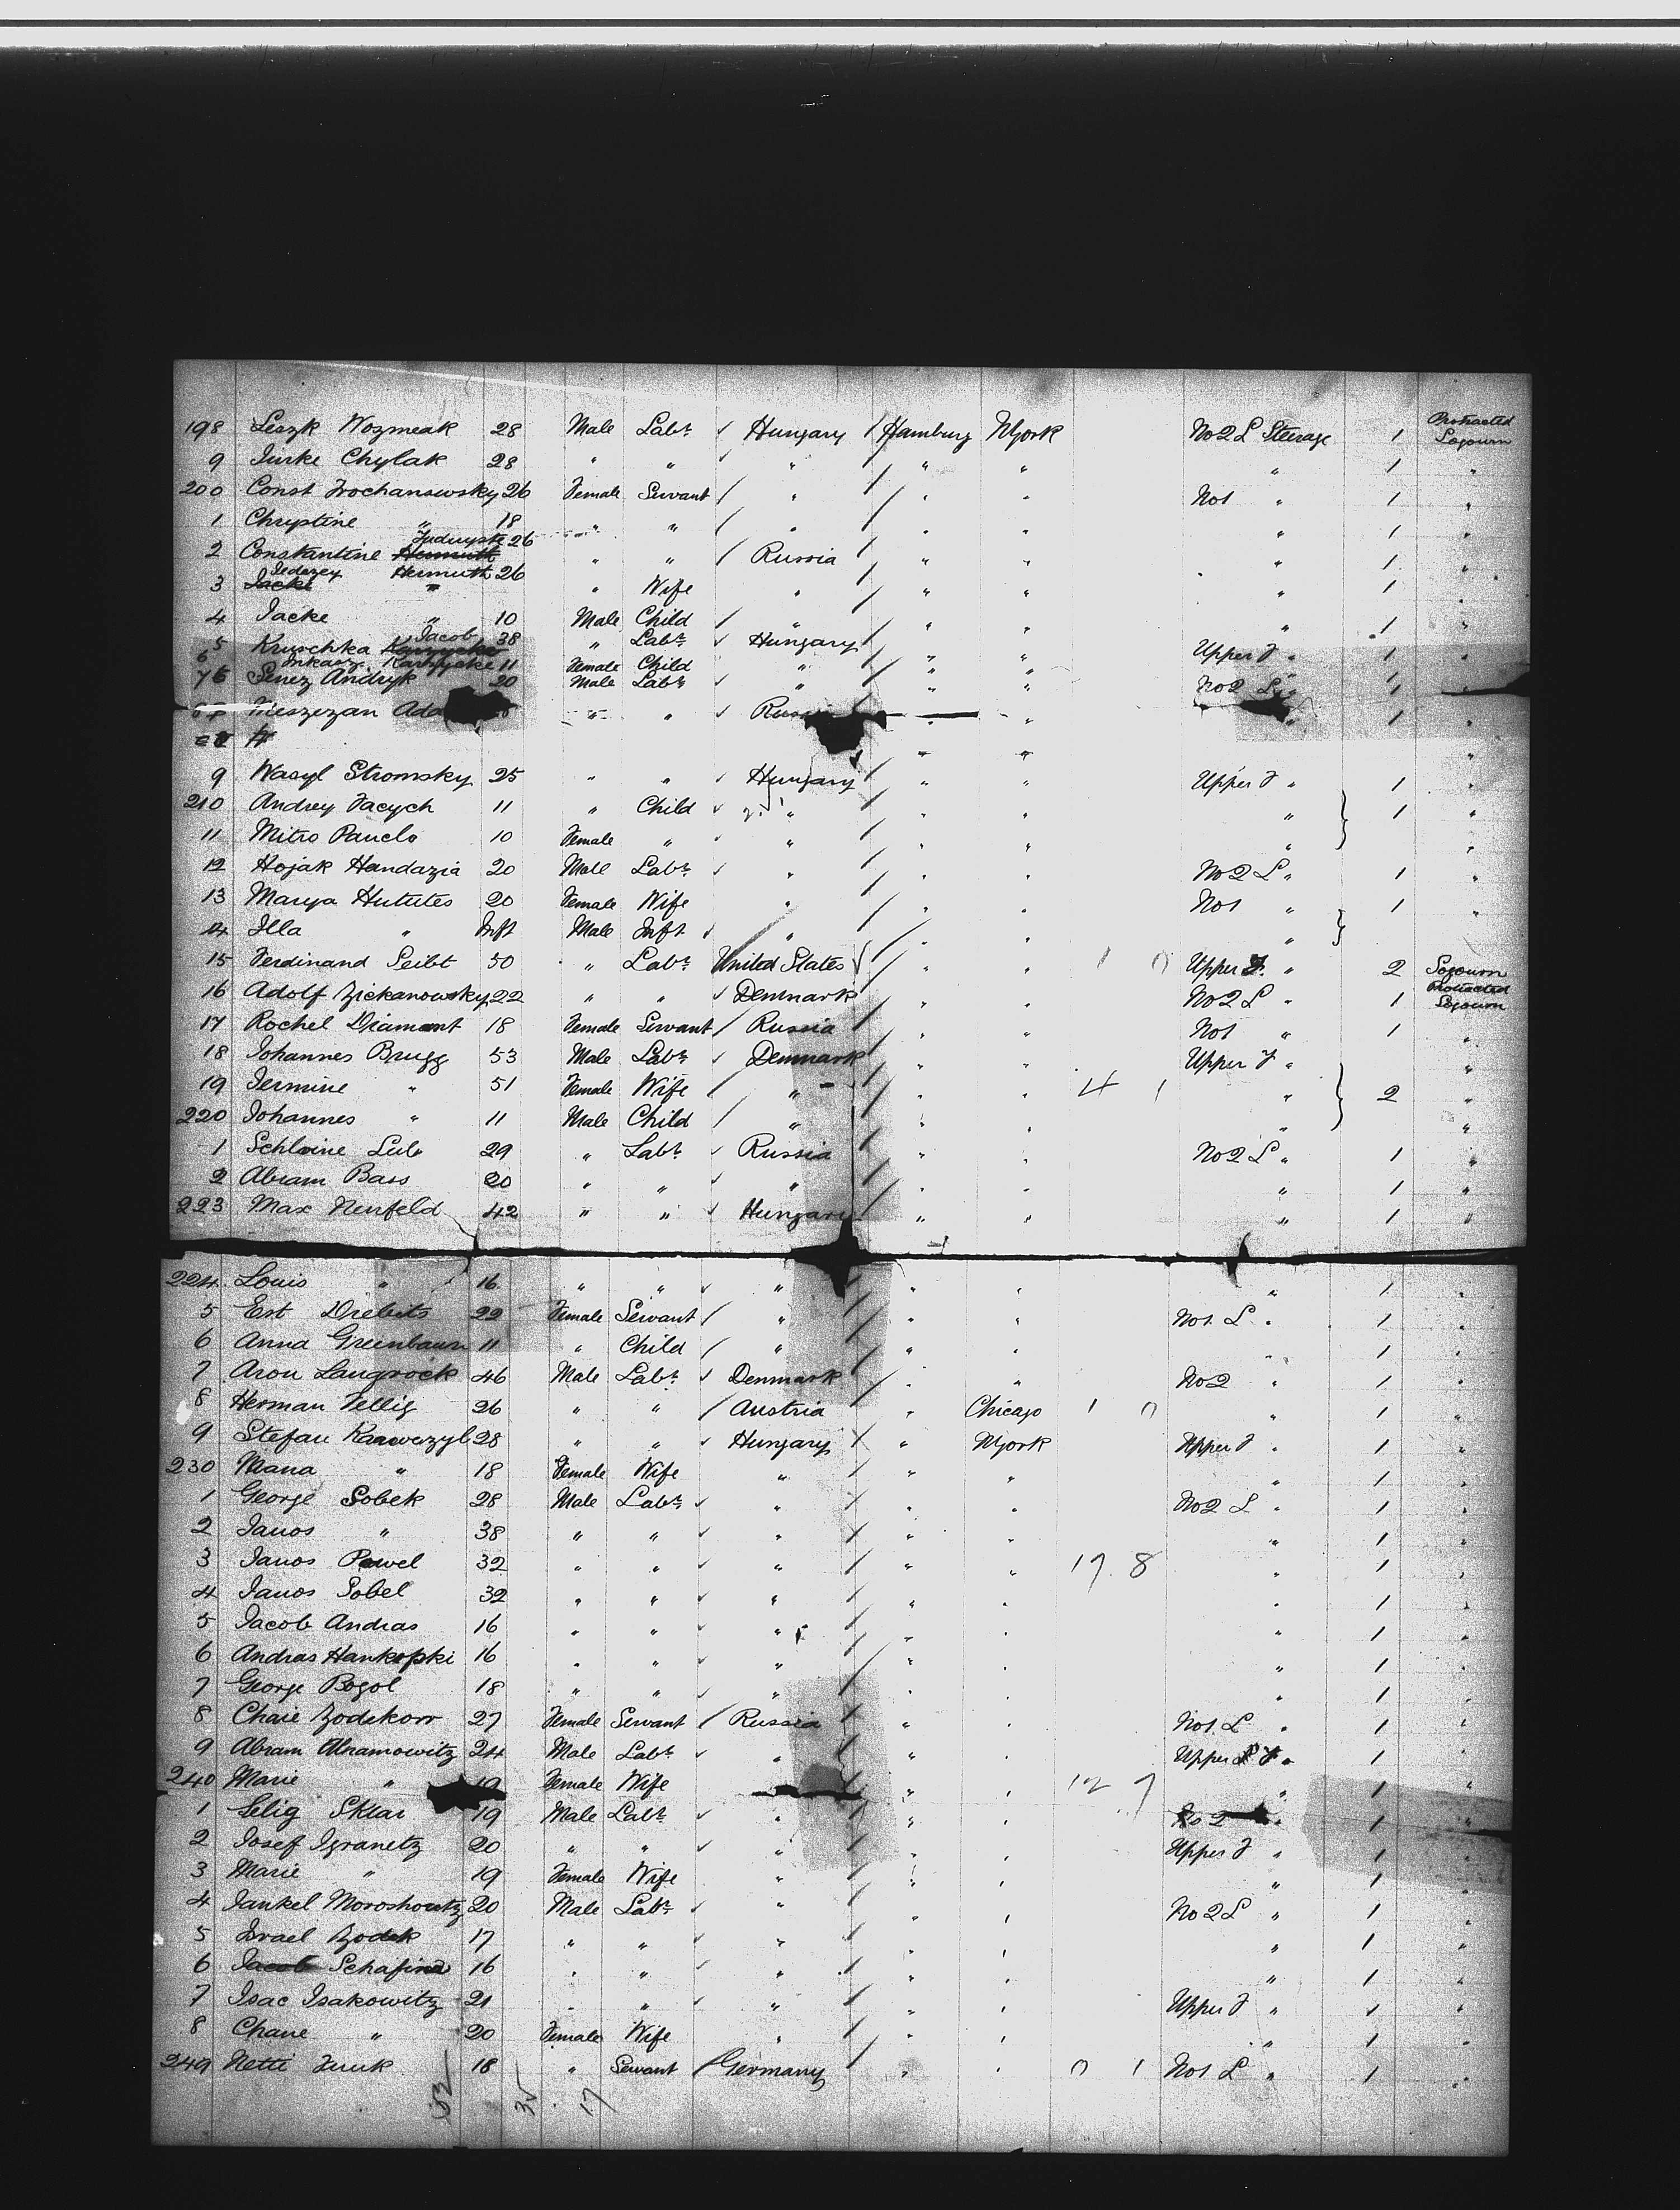 198 Leszk Wozmeak 28 Male Labr ✓ Hungary / Hamburg NYork No 2 L Steerage 1 Protracted Sojourn
9 Jurke Chylak 28 " " ✓ " / " " " 1 "
200 Const Trochanowsky 26 Female Servant / " / " " No 1 " 1 "
1 Chrystine " 18 " " / " / " " " 1 "
2 Constantine 26 " " / Russia " " " 1 "
3 Hermuth 26 " Wife " " " " 1 "
4 Jacke " 10 Male Child / " / " " " 1 "
5 Kruschka Jacob 38 " Labr ✓ Hungary / " " Upper " 1 "
6 Karzycke 11 Female Child " " " 1 "
7 Senez Andryk 20 Male Labr ✓ " " " No 2 L " 1 "
Meszezan " " ✓ " " 1
9 Wasyl Stromsky 25 " " ✓ Hungary / " " Upper " 1 "
210 Andrey Facych 11 " Child ✓ " / " " " } 1 "
11 Mitro Pauclo 10 Female " ✓ " / " " " "
12 Hojak Handazia 20 Male Labr ✓ " / " " No 2 L " 1 "
13 Marya Hututes 20 Female Wife " / " " No 1 " } 1 "
14 Illa " Inft Male Inft ✓ " / " " "
15 Ferdinand Seibt 50 " Labr United States ✓ " " 1 0 Upper " 2 Sojourn
16 Adolf Zickanowsky 22 " " ✓ Denmark No 2 L " 1 Protracted Sojourn
17 Rochel Diamant 18 Female Servant / Russia / " " No 1 " 1 "
18 Johannes Brugg 53 Male Labr ✓ Denmark / " " Upper " "
19 Jermine " 51 Female Wife / " / " " 4 1 " } 2 "
220 Johannes " 11 Male Child / " / " " " "
1 Schloine Lub 29 " Labr ✓ Russia / " " No 2 L " 1 "
2 Abram Bass 20 " " ✓ " / " " " 1 "
223 Max Neufeld 42 " " ✓ Hungary / " " " 1 "
224 Louis " 16 " " ✓ " / " " " 1 "
5 Est Diebets 22 Female Servant / " / " " No 1. L " 1 "
6 Anna Greenbaum 11 " Child / " / " " " 1 "
7 Aron Laugrock 46 Male Labr ✓ Denmark / " " No 2 " 1 "
8 Herman Fellig 26 " " / Austria " Chicago 1 0 " 1 "
9 Stefan Kaawczyl 28 " " ✓ Hungary / " NYork Upper " 1 "
230 Mana " 18 Female Wife " / " " " 1 "
1 George Sobek 28 Male Labr ✓ " / " " No 2 L " 1 "
2 Janos " 38 " " ✓ " / " " " 1 "
3 Janos Pawel 32 " " ✓ " / " " 17 8 " 1 "
4 Janos Sobel 32 " " ✓ " / " " " 1 "
5 Jacob Andras 16 " " ✓ " / " " " 1 "
6 Andras Hankopki 16 " " ✓ " / " " " 1 "
7 George Bogol 18 " " ✓ " / " " " 1 "
8 Chaie Zodekorr 27 Female Servant / Russia / " " No 1. L " 1 "
9 Abram Abramowitz 24 Male Labr ✓ " / " " Upper " 1 "
240 Marie " 19 Female Wife / " " 12 7 " 1 "
1 Selig Sklar 19 Male Labr ✓ " / " " No 2 " 1 "
2 Josef Igranetz 20 " " ✓ " / " " Upper " 1 "
3 Marie " 19 Female Wife " / " " " 1 "
4 Jankel Moroshowitz 20 Male Labr ✓ " / " " No 2 L " 1 "
5 Israel Zodek 17 " " ✓ " / " " " 1 "
6 Jacob Schafina 16 " " ✓ " / " " " 1 "
7 Isac Isakowitz 21 " " ✓ " / " " Upper " 1 "
8 Chane " 20 Female Wife " / " " " 1 "
249 Netti Funk 18 " Servant / Germany / " " 0 1 No 1 L " 1 "
52 35 17